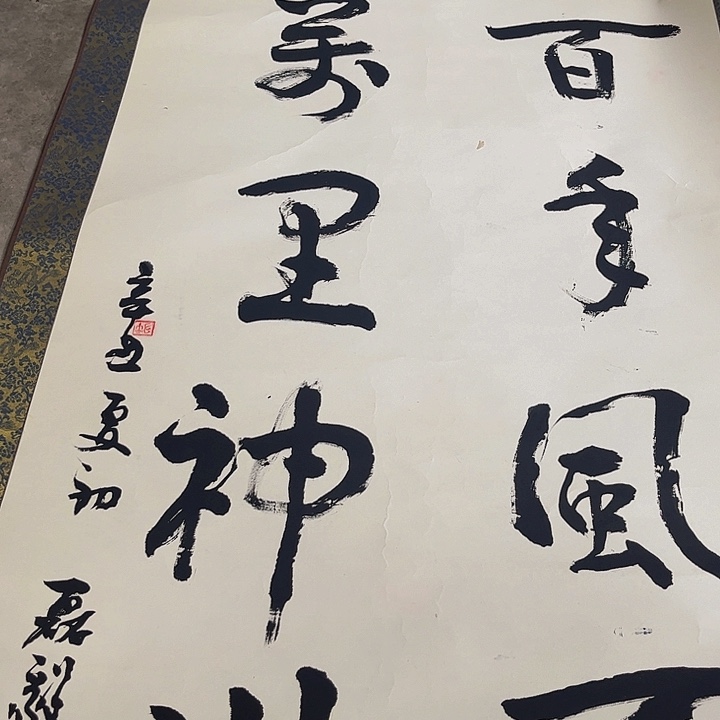 百年風
萬里神
辛丑夏初磊